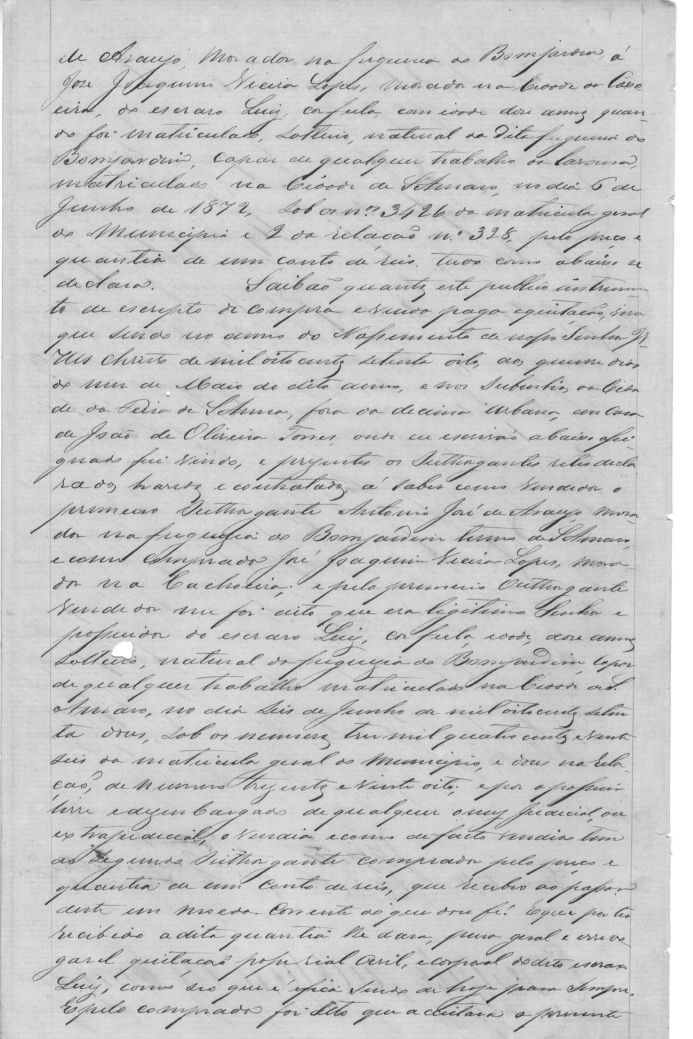 de Araujo, morador na freguesia do Bomjardim, á
José Joaquim Vieira Lopes, morador na Cidade da Caxo
eira, do escravo Luiz, cor fula com idade doze annos quan
do foi matriculado, solteiro, natural da dita freguesia do
Bomjardim, capaz de qualquer trabalho da lavoura,
matriculado na Cidade de S. Amaro, no dia 6 de
Junho de 1872, sob os nos 3426 da matricula geral
do Municipio e 2 da relação n.º 328, pelo preço e
quantia de um conto de reis, tudo como abaixo se
declara. Saibão quantos este publico instrumen
to de escripto de compra e venda paga e quitação, virem
que sendo no anno do Nascimento de nosso Senhor Je
sus Christo de mil oito centos setenta oito, aos quinze dias
do mez de Maio do dito anno, e nos suburbios da Cida
de da Feira de S. Anna, fora da decima urbana, em casa
de João de Oliveira Torres, onde eu escrivão abaixo assi
gnado fui vindo, e prezentes os Outhorgantes
havidos e contratados á saber como vendedor o
primeiro Outhorgante Antonio José de Araujo, mora
dor na freguezia do Bomjardim termo de S. Amaro,
e como comprador José Joaquim Vieira Lopes, mora
dor na Cachoeira; e pelo primeiro Outhorgante
vendedor me foi dito que era legitimo Senhor e
possuidor do escravo Luiz, cor fula idade, doze annos,
solteiro, natural da freguezia do Bomjardim, capaz
de qualquer trabalho matriculado na Cidade de S.
Amaro, no dia seis de Junho de mil oito centos seten
ta dous, sob os numeros tres mil quatro centos e vinte
seis da matricula geral do Municipio, e dous na rela
ção, de numero trezentos e vinte oito; e por o possuir
livre e dezembargado de qualquer onus judicial, ou
extrajudicial, o vendia e como de facto vendido tem
ao segundo Outhorgante comprador pelo preço e
quantia de um conto de reis, que recebeo ao passar
deste em moeda corrente do que dou fé. E que por ter
recebido a dita quantia lhe dava, plena geral e irrevo
gavel quitação posse real civil, e corporal do dito escravo
Luiz, como seo que é e fica sendo de hoje para sempre.
E pelo comprador foi dito que aceitava a presente